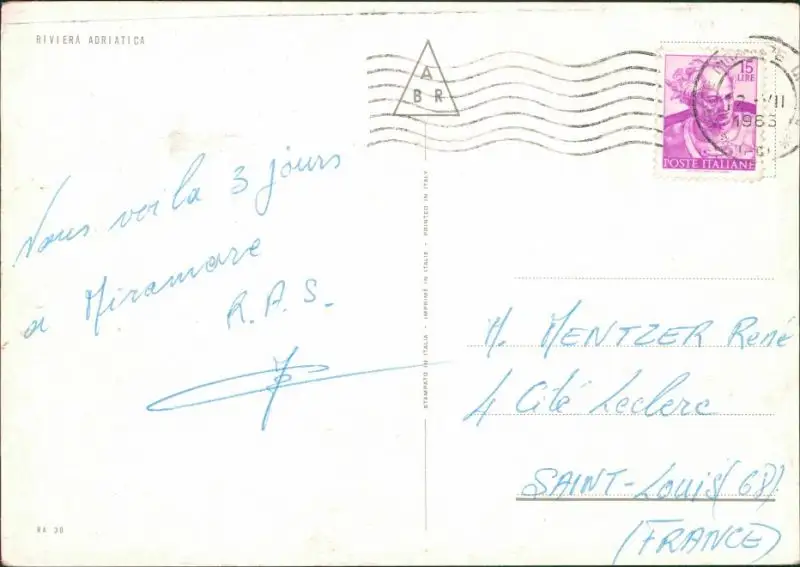 RIVIERA ADRIATICA
A
BR
15
LIRE
VII
1963
POSTE ITALIANE
Nous voila 3 jours
a Miramare
R.A.S.
STAMPATO IN ITALIA - IMPRIMÉ EN ITALIE - PRINTED IN ITALY
M. MENTZER René
4 Cité Leclerc
SAINT-LOUIS (68)
(FRANCE)
RA 30